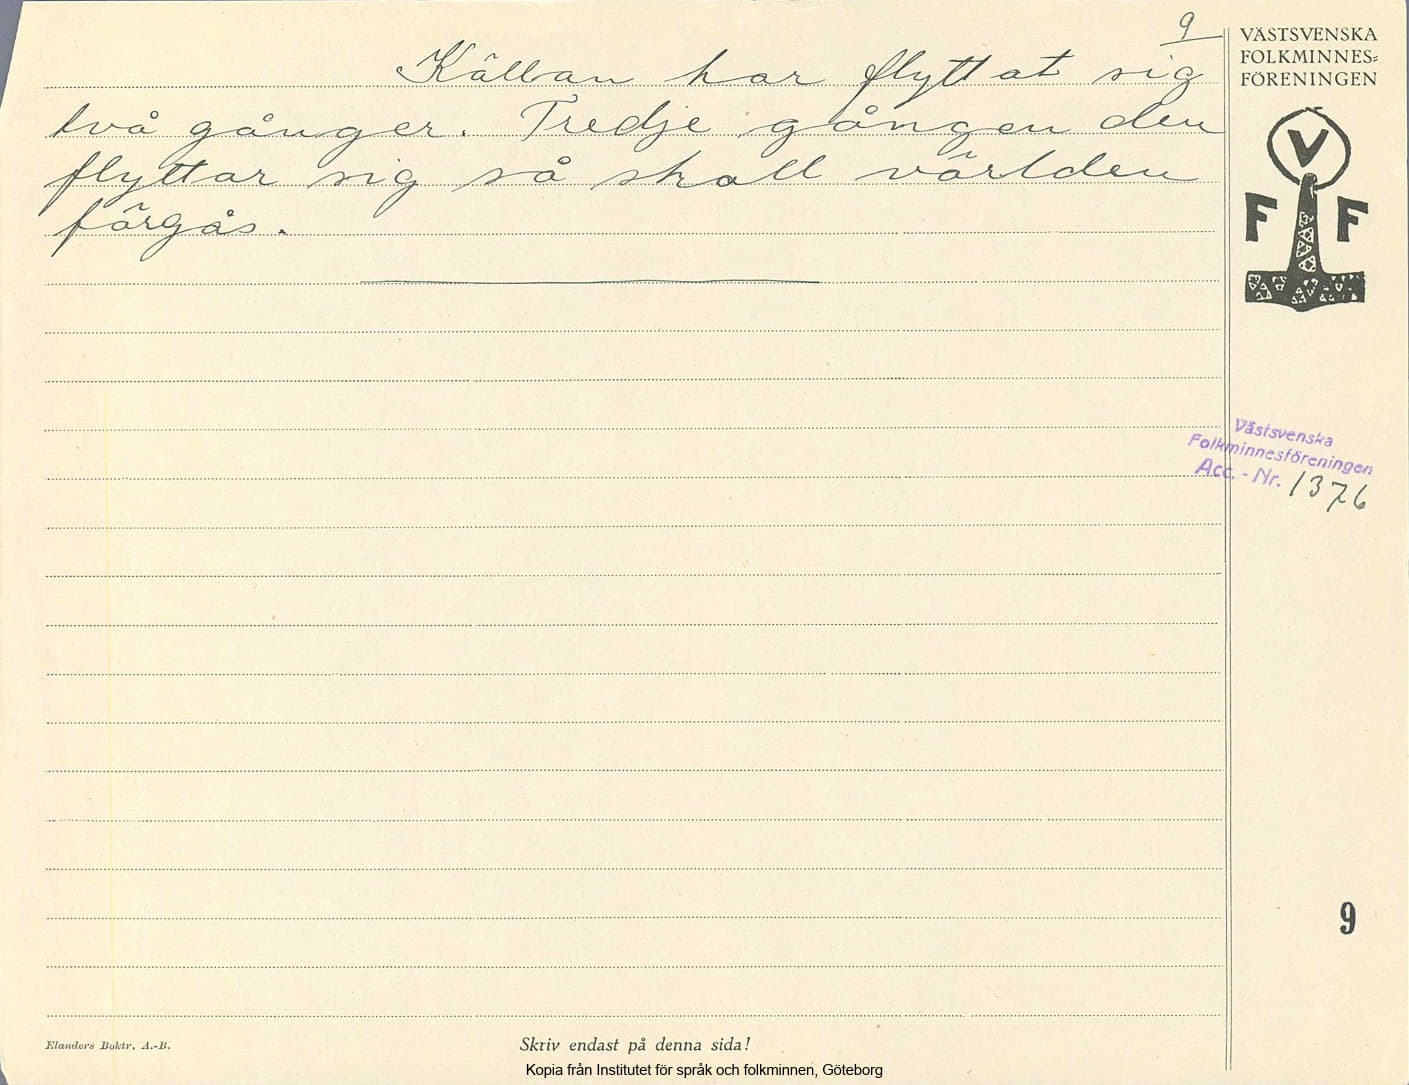 9
Källan har flyttat sig
två gånger. Tredje gången den
flyttar sig så skall världen
förgås.
VÄSTSVENSKA
FOLKMINNES=
FÖRENINGEN
V
F F
Västsvenska
Folkminnesföreningen
Acc. - Nr. 1376
9
Elanders Boktr. A.-B.
Skriv endast på denna sida!
Kopia från Institutet för språk och folkminnen, Göteborg